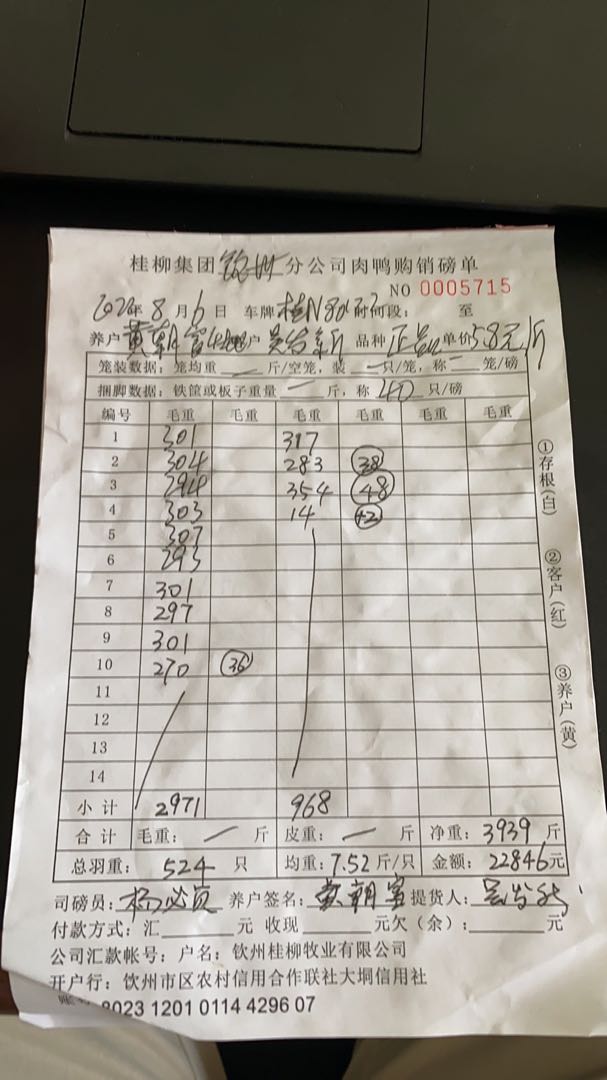 桂柳集团钦州分公司肉鸭购销磅单
NO 0005715
8月6日 车牌 桂N 时间段: 至
养户 黄朝富 客户 品种 正品 单价5.8元/斤
笼装数据: 笼均重 — 斤/空笼, 装 — 只/笼, 称 — 笼/磅
捆脚数据: 铁筐或板子重量 — 斤, 称 40 只/磅
编号 毛重 毛重 毛重 毛重 毛重 毛重
1 301 317
2 304 283 38
3 294 354 48
4 303 14 +2
5 307
6 293
7 301
8 297
9 301
10 270 36
11
12
13
14
小计 2971 968
合计 毛重: — 斤 皮重: — 斤 净重: 3939 斤
总羽重: 524 只 均重: 7.52 斤/只 金额: 22846元
司磅员: 养户签名: 黄朝富 提货人:
付款方式: 汇 元 收现 元欠(余): 元
公司汇款帐号: 户名: 钦州桂柳牧业有限公司
开户行: 钦州市区农村信用合作联社大垌信用社
8023 1201 0114 4296 07
①存根(白)
②客户(红)
③养户(黄)